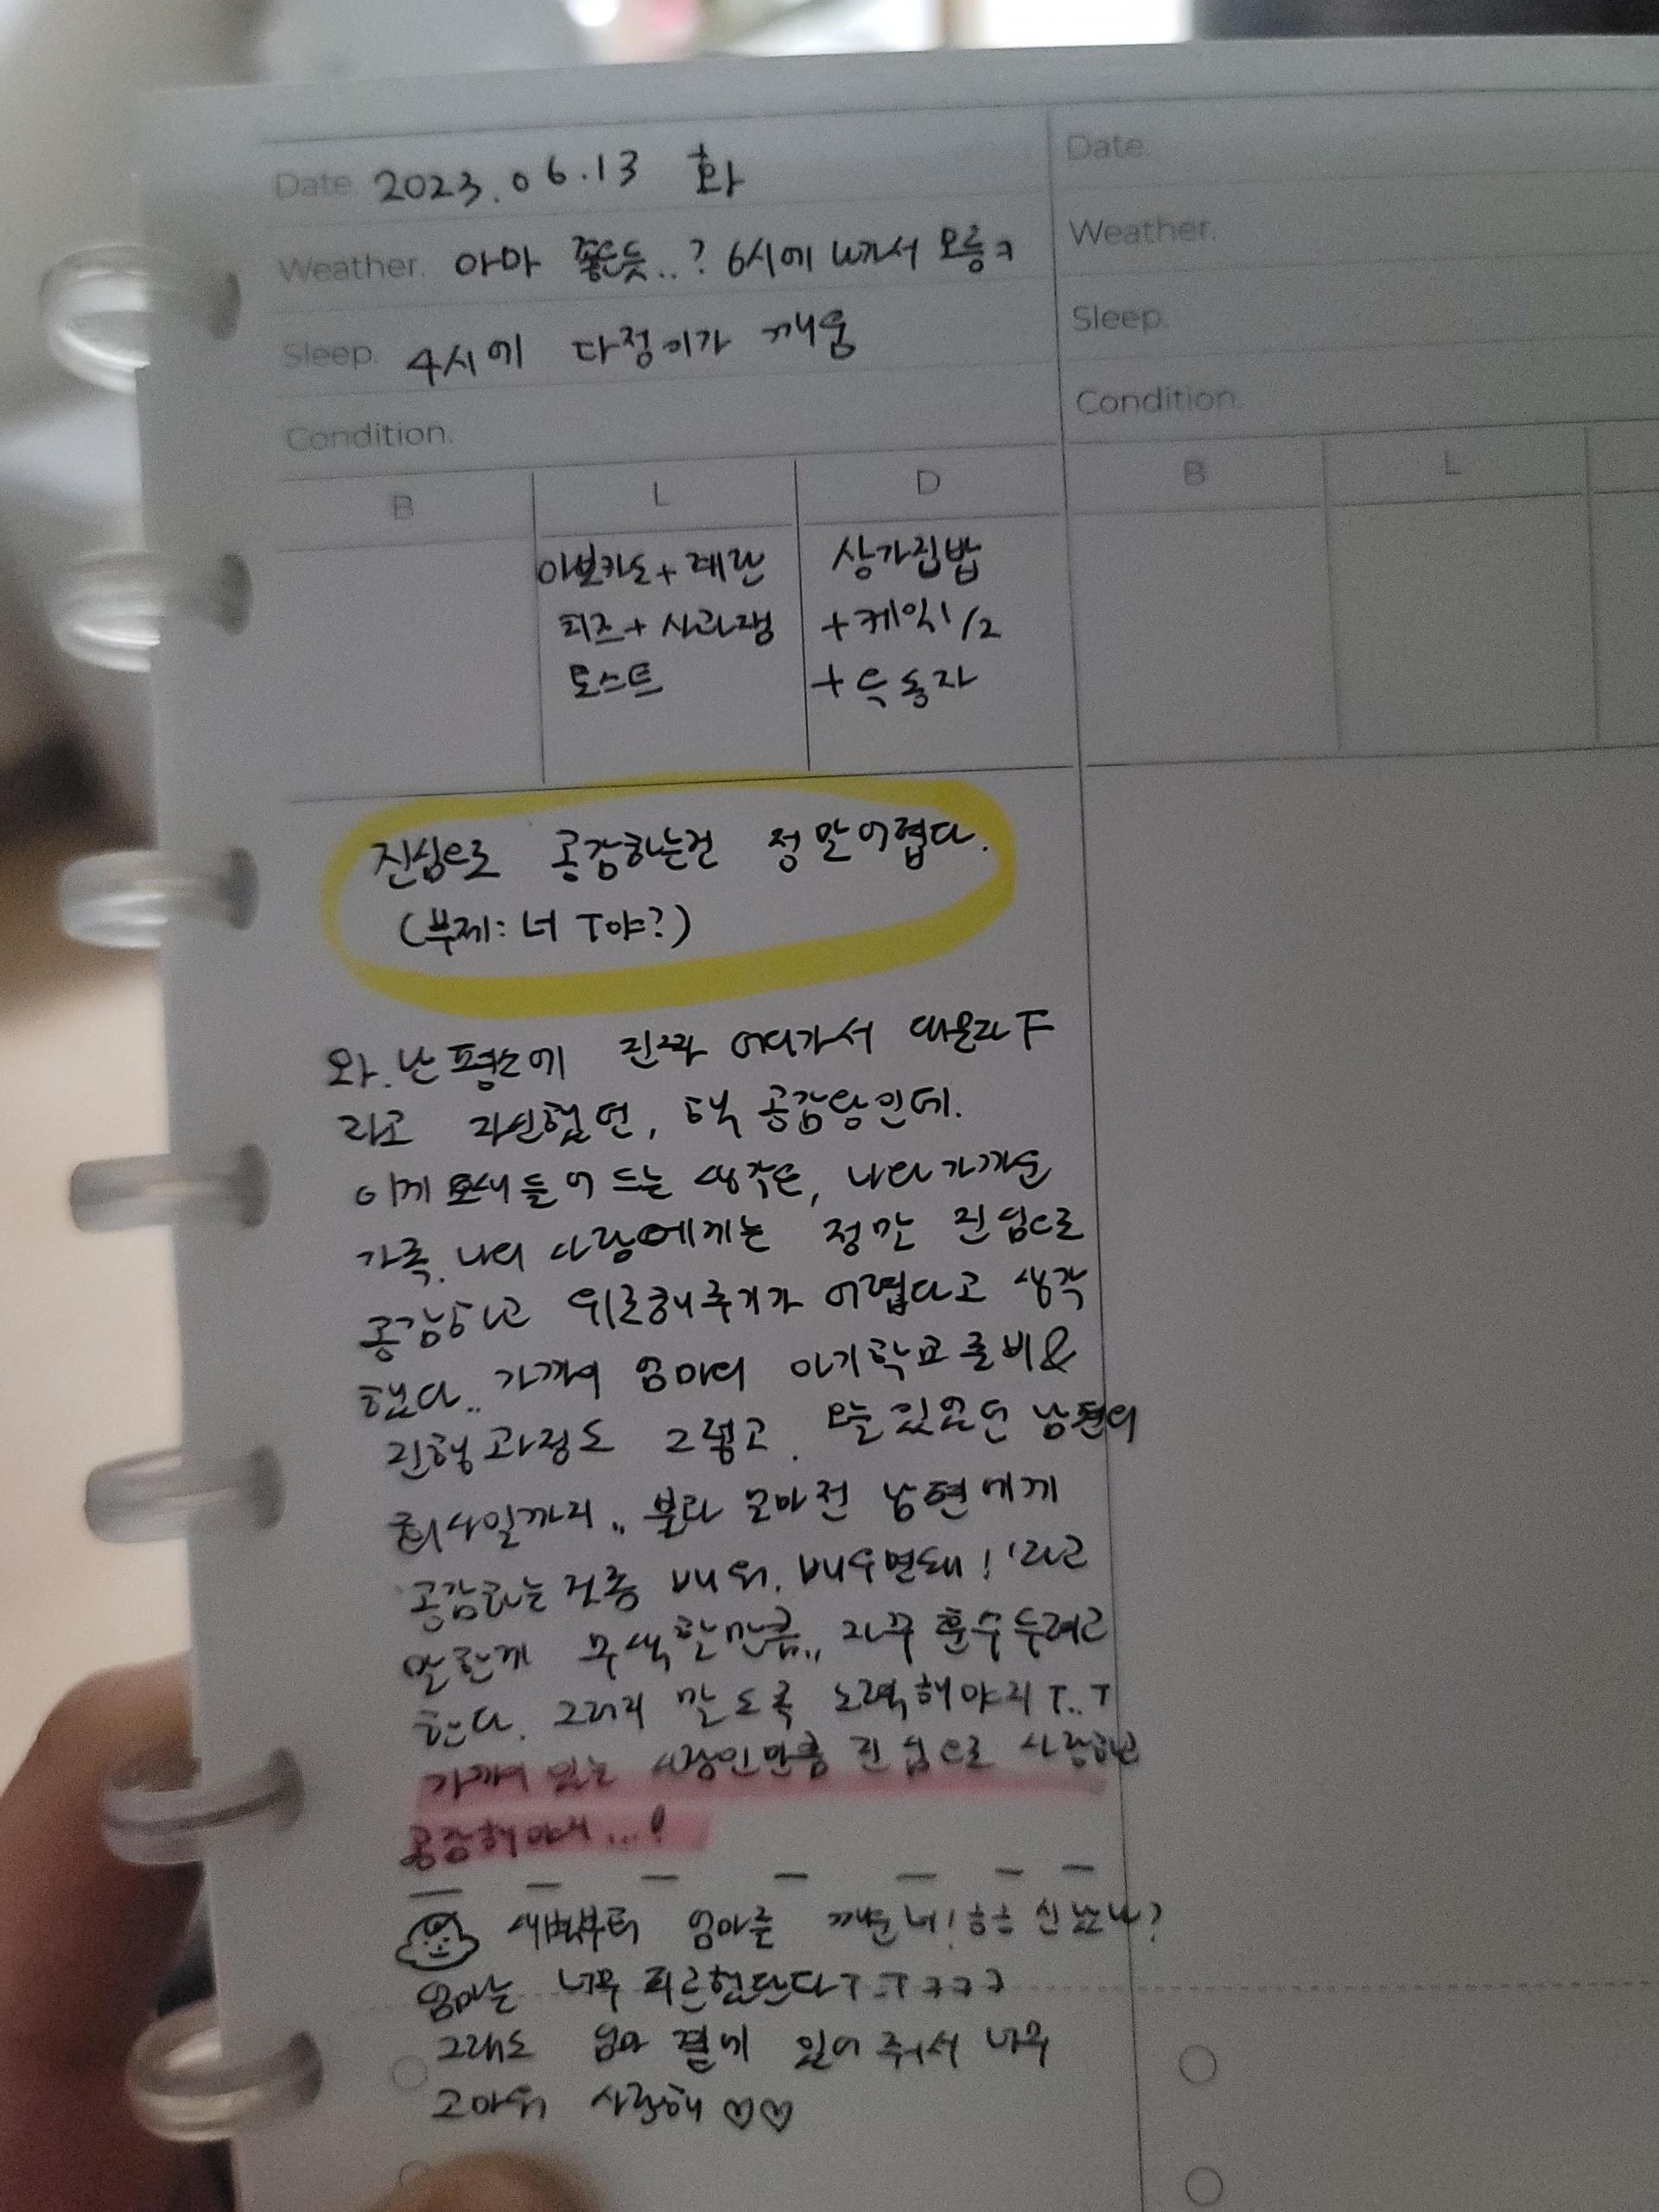 Date. 2023.06.13 화
Date.
Weather. 아마 좋은듯..? 6시에 나가서 모름ㅋ
Weather.
Sleep. 4시에 다정이가 깨움
Sleep.
Condition.
Condition.
B L D
B L
아보카도+계란 상가집밥
치즈+사과잼 +케익1/2
토스트
진심으로 공감하는건 정말어렵다.
(부제: 너 T야?)
와. 난 평소에 진짜 어디가서 대문자 F
라고 자신했던, 핵 공감왕인데.
이게 요새들어 드는 생각은, 나랑 가까운
가족. 나의 사랑에게는 정말 진심으로
공감하고 위로해주기가 어렵다고 생각
했다.. 가까이 엄마의 아기학교준비&
진행과정도 그렇고. 오늘 있었던 남편의
회사일까지.. 불과 얼마전 남편에게
공감하는 걸좀 배워. 배우면돼! '라고
말한게 무색할만큼.. 자꾸 훈수두려고
한다. 그러지 말도록 노력해야지 T..T
가까이 있는 사랑인만큼 진심으로 사랑하고
공감해야지...!
새벽부터 엄마를 깨운너! 흐흐 신났니?
엄마는 너무 피곤했단다ㅜㅜㅋㅋㅋ
그래도 엄마 곁에 있어 줘서 너무
고마워 사랑해♡♡